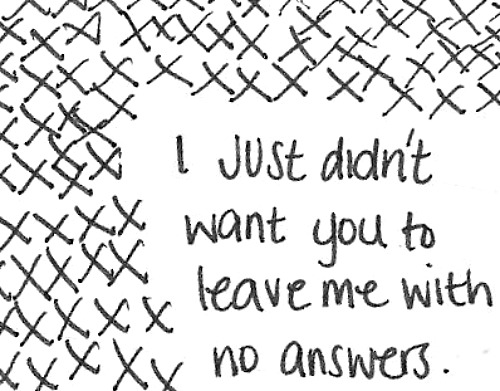 I Just didn't
want you to
leave me with
no answers.